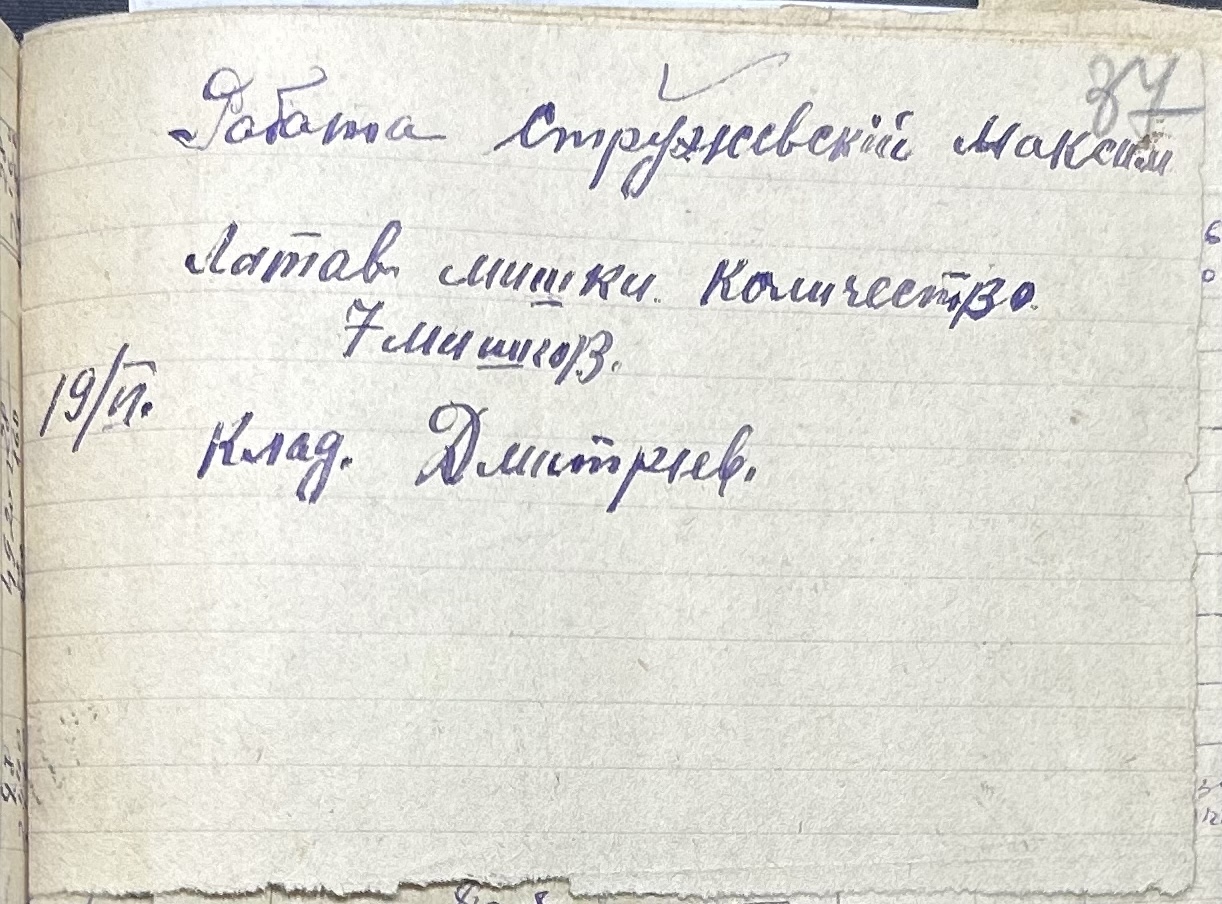 37
Рабата Стружевскій Максим
Латав мишки количество
7 мишков.
19/VI.
Клад. Дмитриев.